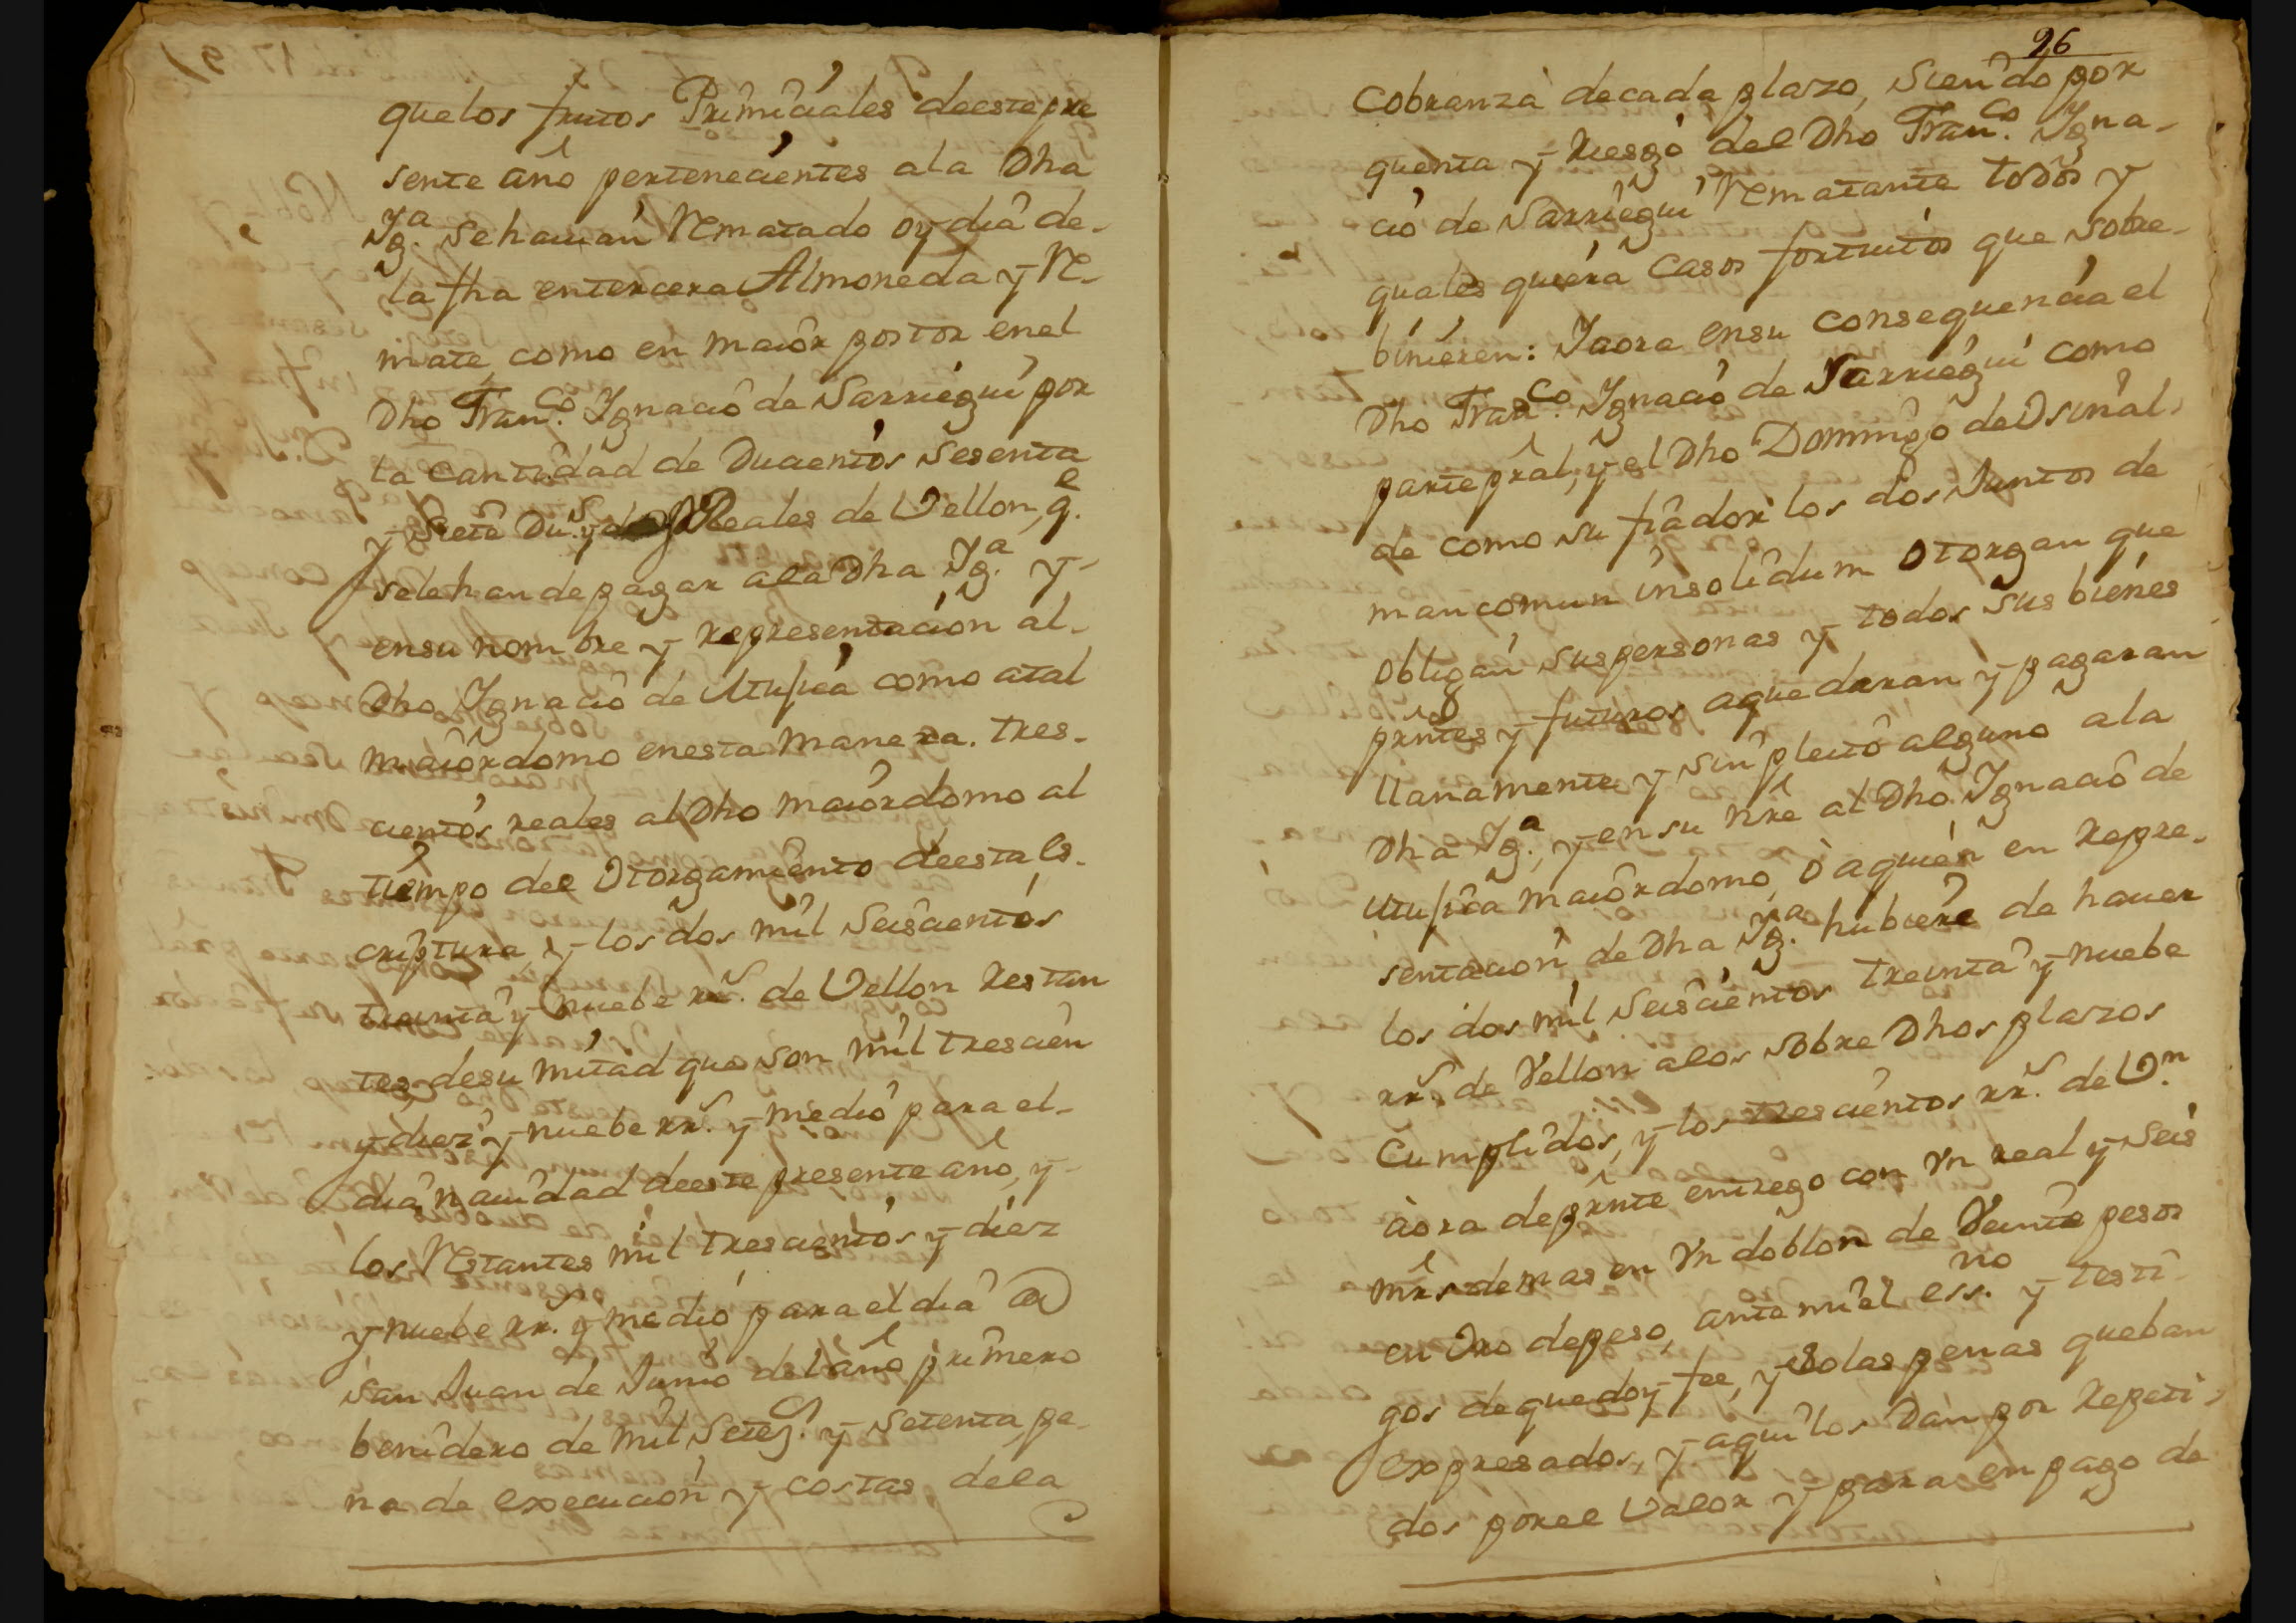 que los frutos Primiciales de este pre
sente año pertenecientes a la Dha
Yg.ª se hauian Rematado oy dia de-
la fha en tercera Almoneda y Re-
mate, como en maior postor en el
Dho Fran.co Ygnacio de Sarriegui por
la cantidad de Ducientos Sesenta
y siete Du.s y Reales de Vellon, q.e
se le han de pagar a la Dha Yg.ª y-
en su nombre y representacion al-
Dho Ygnacio de Utussea como a tal
maiordomo en esta manera. tres-
cientos reales al Dho maiordomo al
tiempo del Otorgamiento de esta es-
criptura, y los dos mil Seiscientos
treinta y nuebe rr.s de Vellon restan
tes, de su mitad que son mil trescien
y diez y nuebe rr.s y medio para el-
dia nauidad de este presente año, y-
los Restantes mil trescientos y diez
y nuebe rr.s y medio para el dia de
San Juan de Junio del año primero
benidero de mil Setez.s y Setenta, pe-
na de execucion y costas de la
96
Cobranza de cada plazo, siendo por
quenta y riesgo del Dho Fran.co Ygna-
cio de Sarriegui Rematante todos y
quales quiera Casos fortuitos que sobre-
binieren: Y aora en su consequencia el
Dho Fran.co Ygnacio de Sarriegui como
parte pral, y el Dho Domingo de Osinal-
de como su fiador los dos Juntos de
mancomun insolidum otorgan que
obligan sus personas y todos sus bienes
prntes y futuros a que daran y pagaran
llanamente y sin pleito alguno a la
Dha Yg.ª, y en su nre al Dho Ygnacio de
Utussea maiordomo, ò a quien en repre-
sentacion de Dha Yg.ª hubiere de hauer
los dos mil Seiscientos treinta y nuebe
rr.s de Vellon a los sobre Dhos plazos
Cumplidos, y los trescientos rr.s de V.n
àora de prnte entrego con Vn real y Seis
mrs demas en Vn doblon de Veinte pesos
en Oro de peso, ante mi el ess.no y testi-
gos de que doy fee, y so las penas que ban
expresados, y aqui los Dan por repeti-
dos por el Valor y para en pago de